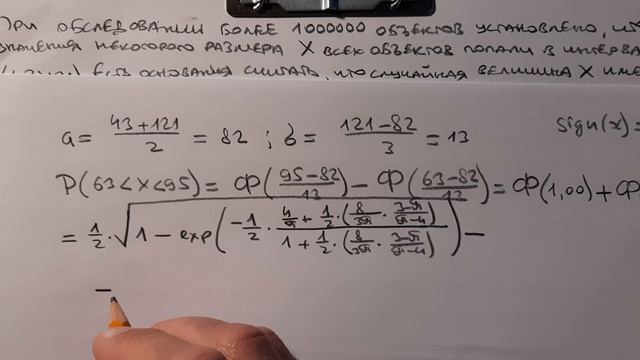 При обследовании более 1000000 объектов установлено, чт
значения некоторого размера X всех объектов попали в интерва
есть основания считать, что случайная величина X име
a = \frac{43+121}{2} = 82 ; б = \frac{121-82}{3} = 13 sign(x)=
P(63<X<95) = Ф(\frac{95-82}{13}) - Ф(\frac{63-82}{13}) = Ф(1,00) + Ф
= \frac{1}{2} \cdot \sqrt{1 - exp(-\frac{1}{2} \cdot \frac{\frac{4}{π} + \frac{1}{2} \cdot (\frac{8}{3π} \cdot \frac{3-π}{π-4})}{1 + \frac{1}{2} \cdot (\frac{8}{3π} \cdot \frac{3-π}{π-4})})} -
-